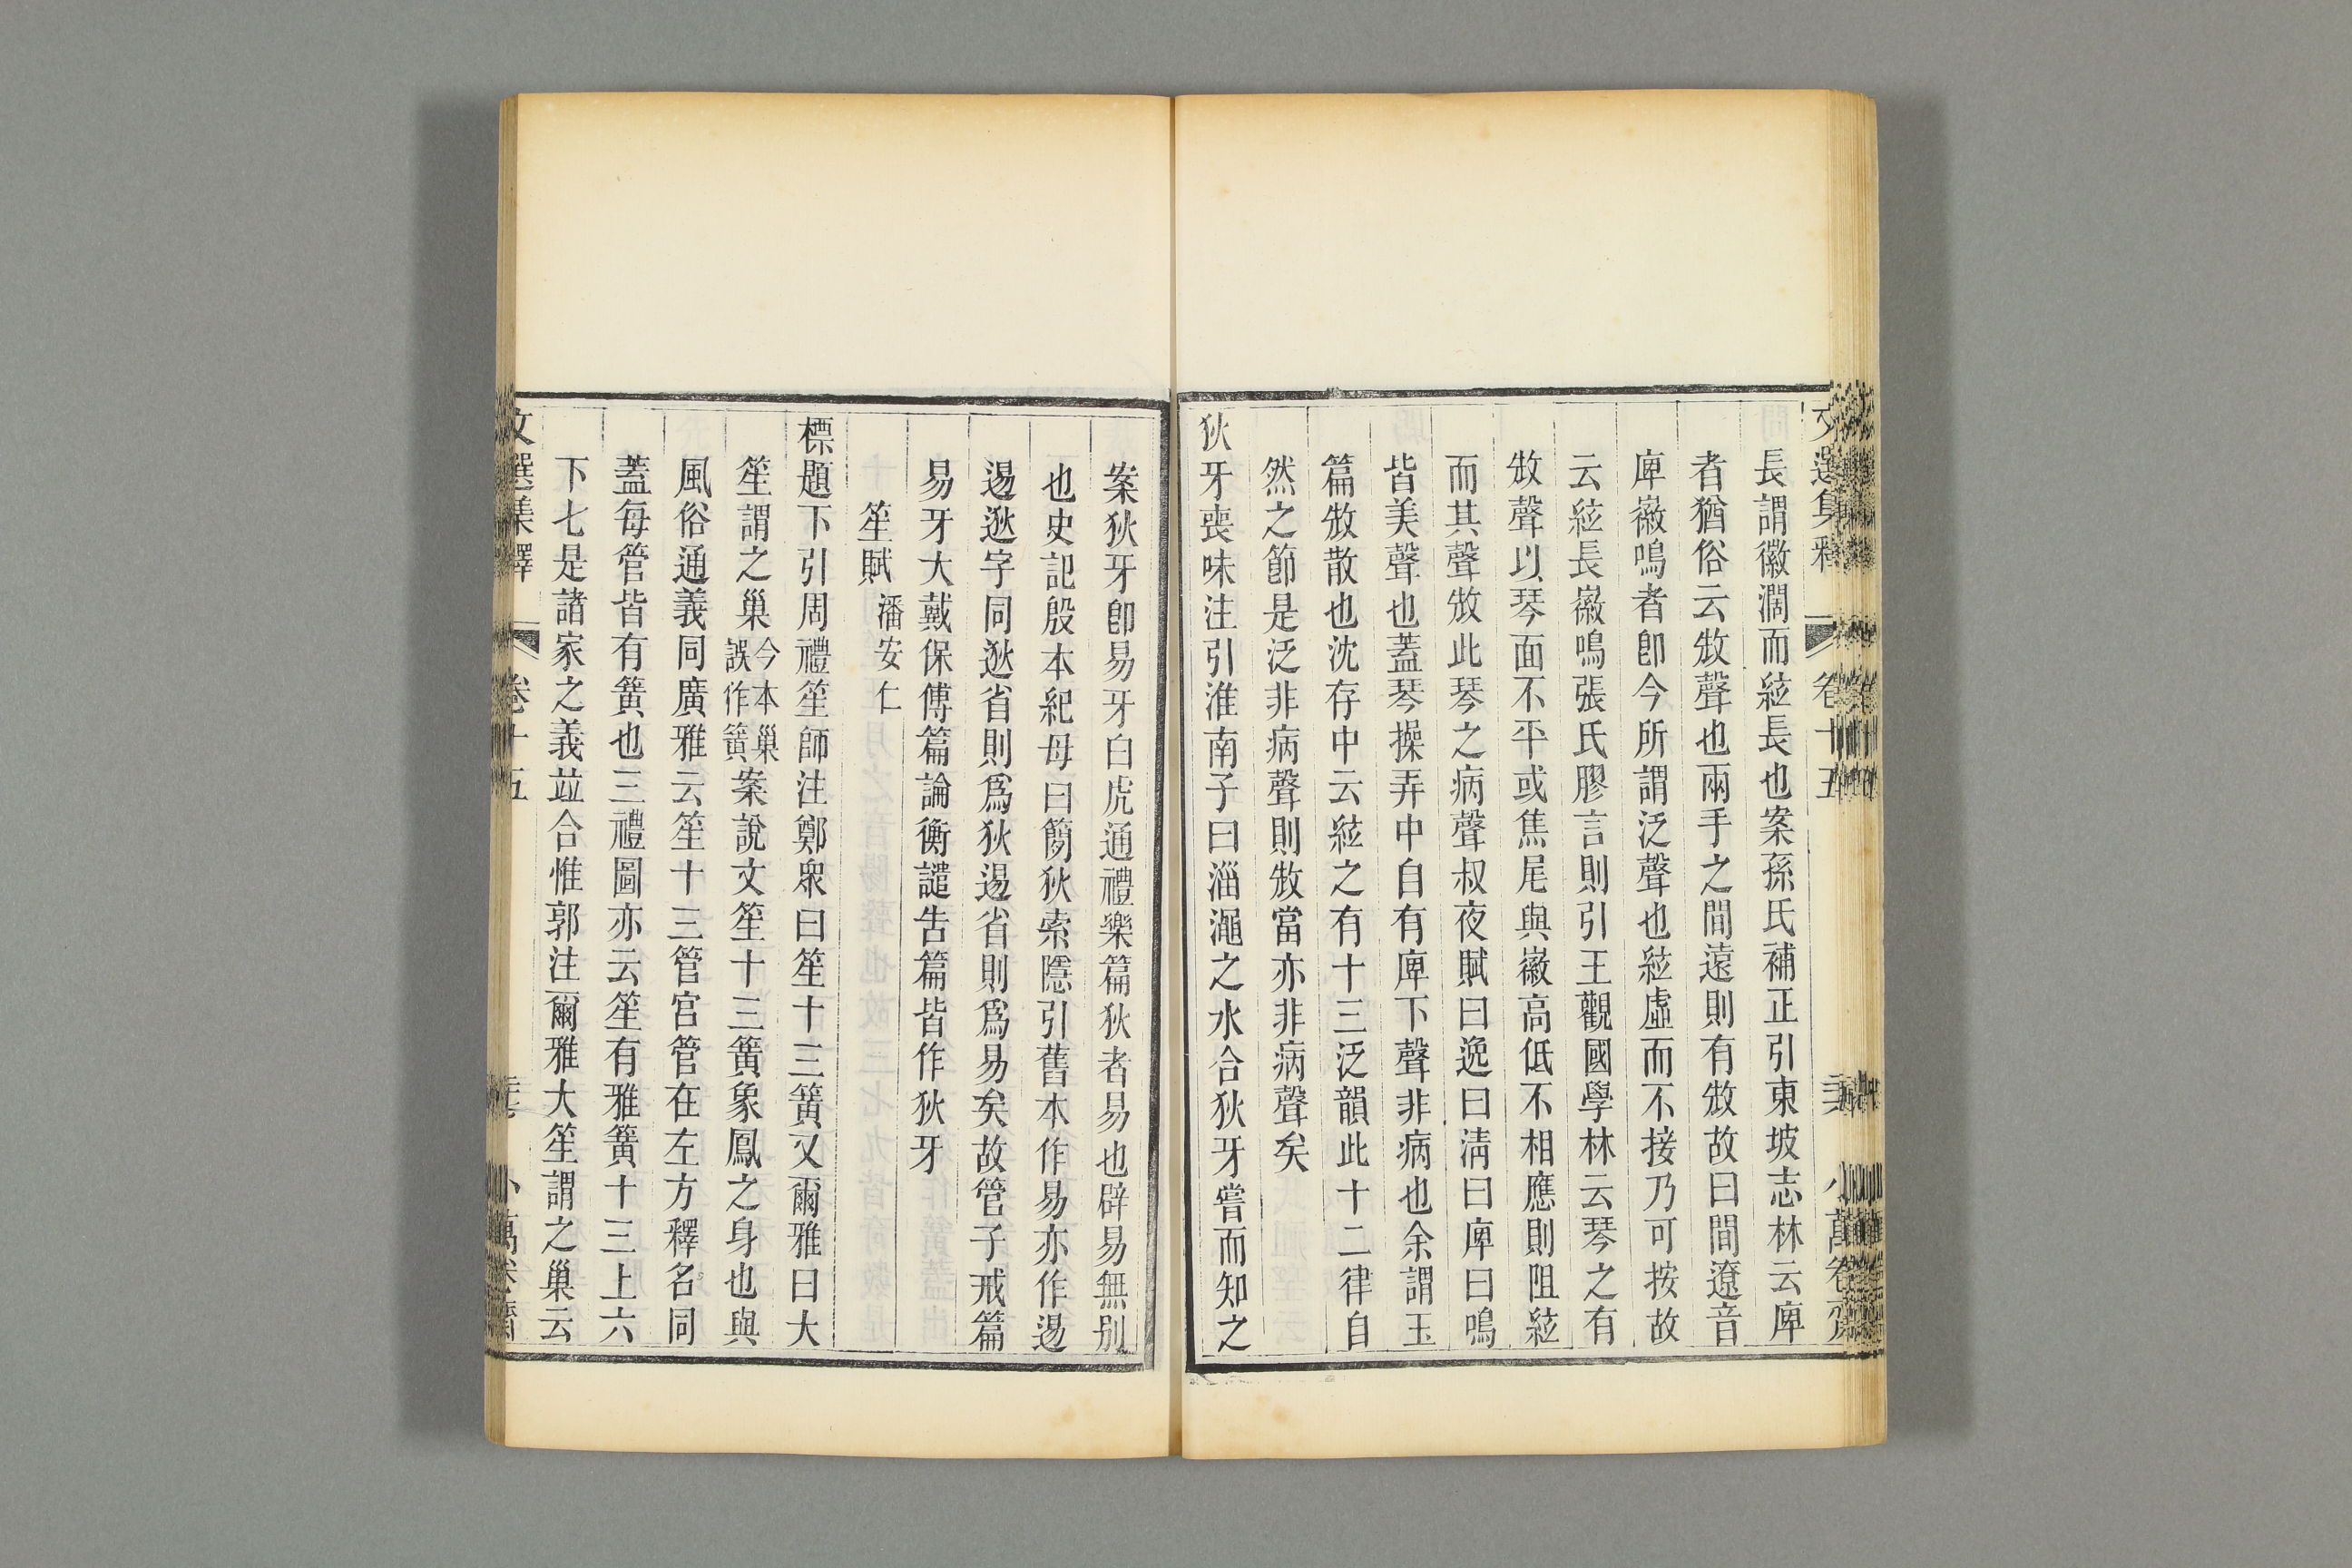 長謂徽濶而絃長也案孫氏補正引東坡志林云庳
者猶俗云㪇聲也兩手之間遠則有㪇故曰間遼音
庳徽鳴者卽今所謂泛聲也絃虛而不接乃可按故
云絃長徽鳴張氏膠言則引王觀國學林云琴之有
㪇聲以琴面不平或焦尾與徽高低不相應則阻絃
而其聲㪇此琴之病聲叔夜賦曰逸曰淸曰庳曰鳴
皆美聲也蓋琴操弄中自有庳下聲非病也余謂玉
篇㪇散也沈存中云絃之有十三泛韻此十二律自
然之節是泛非病聲則㪇當亦非病聲矣
狄牙喪味注引淮南子曰淄澠之水合狄牙嘗而知之
案狄牙卽易牙白虎通禮樂篇狄者易也辟易無别
也史記殷本紀母曰簡狄索隱引舊本作易亦作逷
逷逖字同逖省則爲狄逷省則爲易矣故管子戒篇
易牙大戴保傅篇論衡譴告篇皆作狄牙
笙賦 潘安仁
標題下引周禮笙師注鄭衆曰笙十三簧又爾雅曰大
笙謂之巢今本巢誤作簧案說文笙十三簧象鳳之身也與
風俗通義同廣雅云笙十三管宮管在左方釋名同
蓋每管皆有簧也三禮圖亦云笙有雅簧十三上六
下七是諸家之義竝合惟郭注爾雅大笙謂之巢云
文選集釋 卷十五